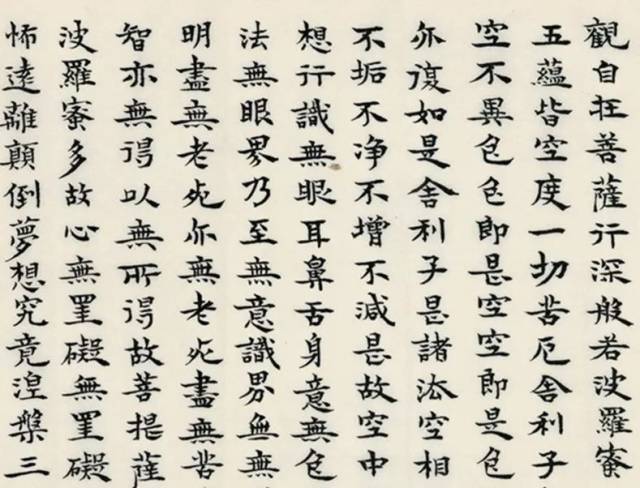 觀自在菩薩行深般若波羅蜜
五蘊皆空度一切苦厄舍利子
空不異色色即是空空即是色
亦復如是舍利子是諸法空相
不垢不净不增不減是故空中
想行識無眼耳鼻舌身意無色
法無眼界乃至無意識界無無
明盡無老死亦無老死盡無苦
智亦無得以無所得故菩提薩
波羅蜜多故心無罣礙無罣礙
怖遠離顛倒夢想究竟涅槃三